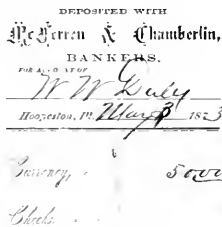 DEPOSITED WITH
McFerren & Chamberlin,
BANKERS.
FOR ACCOUNT OF
W W Duly
Hoopeston, Ill. Mar 3 1873
Currency, 5000
Checks